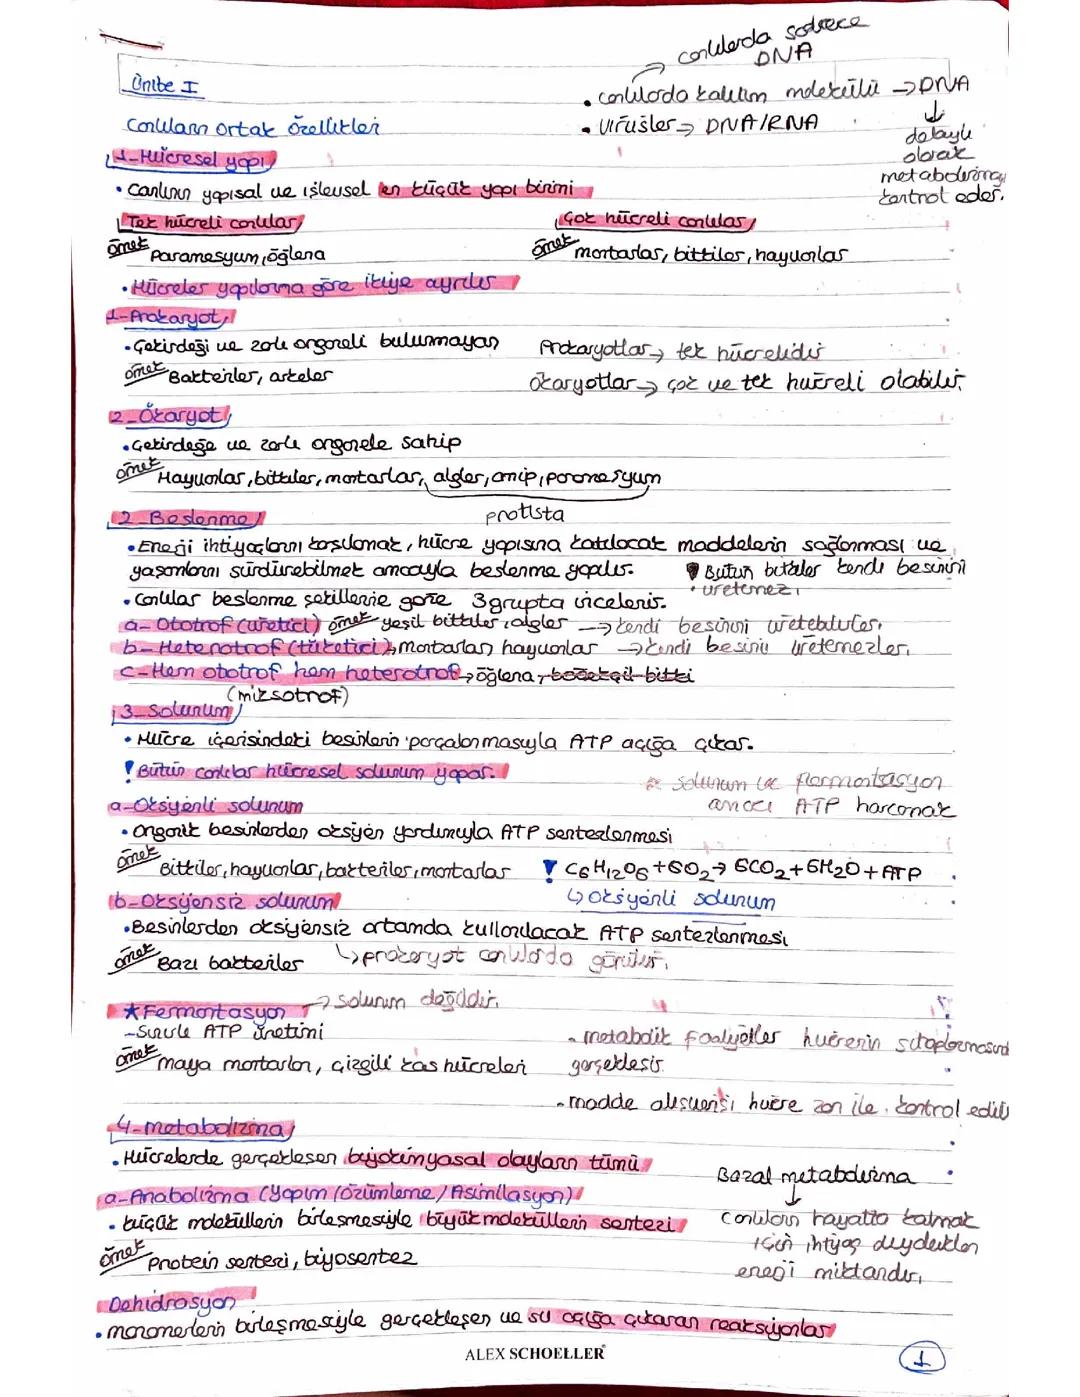 canlılarda sadece
DNA
Ünite I
• canlılarda kalıtım molekülü → DNA
Canlıların ortak özellikleri
• Virüsler → DNA/RNA
dolaylı
olarak
metabolizmayı
kontrol eder.
1-Hücresel yapı
• Canlının yapısal ve işlevsel en küçük yapı birimi
Tek hücreli canlılar
Çok hücreli canlılar
örnek Paramesyum, öğlena
örnek mantarlar, bitkiler, hayvanlar
• Hücreler yapılarına göre ikiye ayrılır
1-Prokaryot
• Çekirdeği ve zarlı organeli bulunmayan
Prokaryotlar → tek hücrelidir
örnek Bakteriler, arkeler
Ökaryotlar → çok ve tek hücreli olabilir.
2-Ökaryot
• Çekirdeğe ve zarlı organele sahip
örnek Hayvanlar, bitkiler, mantarlar, algler, amip, paramesyum
protista
2-Beslenme
• Enerji ihtiyaçlarını karşılamak, hücre yapısına katılacak maddelerin sağlanması ve
yaşamlarını sürdürebilmek amacıyla beslenme yapılır.
Bütün bitkiler kendi besinini
üretemez
• Canlılar beslenme şekillerine göre 3 grupta incelenir.
a- Ototrof (üretici) örnek yeşil bitkiler, algler → kendi besinini üretebilirler.
b- Heterotrof (tüketici) mantarlar, hayvanlar → kendi besinini üretemezler.
c-Hem ototrof hem heterotrof → öğlena, böcekçil bitki
(miksotrof)
3-Solunum
• Hücre içerisindeki besinlerin parçalanmasıyla ATP açığa çıkar.
! Bütün canlılar hücresel solunum yapar.
* solunum ve fermantasyon
amacı ATP harcamak
a-Oksijenli solunum
• Organik besinlerden oksijen yardımıyla ATP sentezlenmesi
örnek Bitkiler, hayvanlar, bakteriler, mantarlar
! C6H12O6 + 6O2 → 6CO2 + 6H2O + ATP
b-Oksijensiz solunum
↳ oksijenli solunum
• Besinlerden oksijensiz ortamda kullanılacak ATP sentezlenmesi
örnek Bazı bakteriler
↳ prokaryot canlılarda görülür.
★ Fermantasyon → solunum değildir.
- Sınırlı ATP üretimi
- metabolik faaliyetler hücrenin sitoplazmasında
örnek maya mantarları, çizgili kas hücreleri
gerçekleşir.
- madde alışverişi hücre zarı ile kontrol edilir
4-metabolizma
• Hücrelerde gerçekleşen biyokimyasal olayların tümü
Bazal metabolizma
a-Anabolizma (Yapım/Özümleme/Asimilasyon)
• küçük moleküllerin birleşmesiyle büyük moleküllerin sentezi
Canlıların hayatta kalmak
için ihtiyaç duydukları
örnek Protein sentezi, biyosentez
enerji miktarıdır.
Dehidrasyon
• monomerlerin birleşmesiyle gerçekleşen ve su açığa çıkaran reaksiyonlar
ALEX SCHOELLER
1